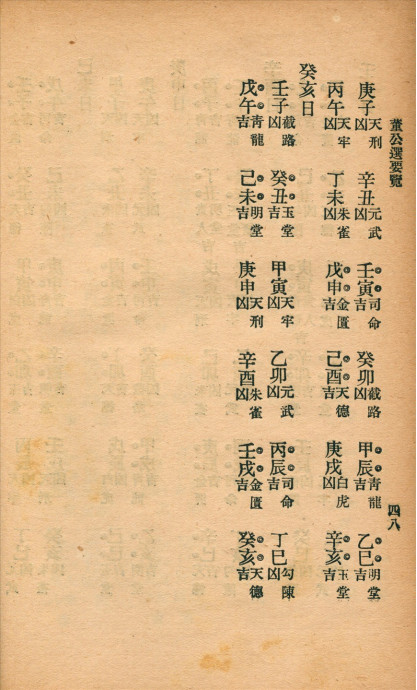 董公選要覽 四八
庚子天刑凶 辛丑元武凶 壬寅司命吉 癸卯截路凶 甲辰青龍吉 乙巳明堂吉
丙午天牢凶 丁未朱雀凶 戊申金匱吉 己酉天德吉 庚戌白虎凶 辛亥玉堂吉
癸亥日
壬子截路凶 癸丑玉堂吉 甲寅天牢凶 乙卯元武凶 丙辰司命吉 丁巳勾陳凶
戊午青龍吉 己未明堂吉 庚申天刑凶 辛酉朱雀凶 壬戌金匱吉 癸亥天德吉